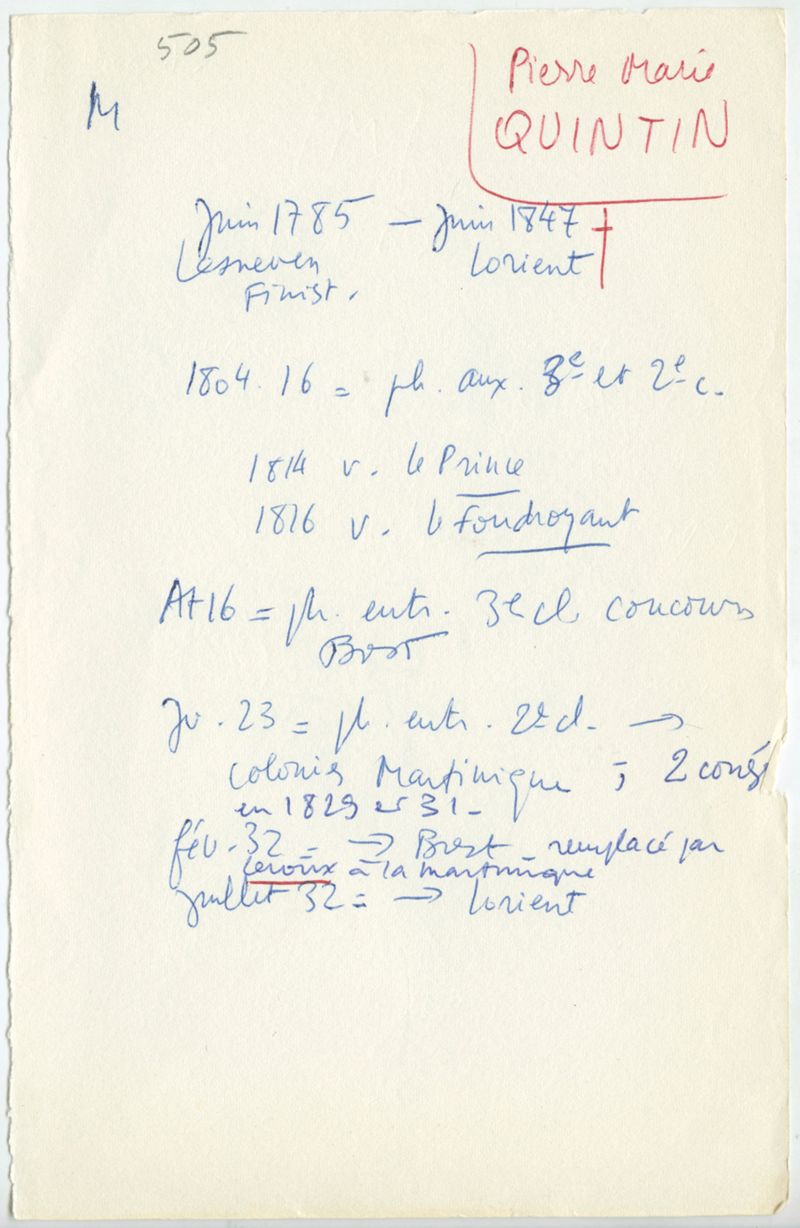 505
M
Pierre Marie
QUINTIN
Juin 1785 — Juin 1847 †
Lesneven Lorient
Finist.
1804.16 = ph. aux. 3e et 2e c.
1814 v. le Prince
1816 v. le Foudroyant
At 16 = ph. entr. 3e cl. concours
Brest
Jv. 23 = ph. entr. 2e cl. →
colonies Martinique ; 2 congés
en 1829 et 31 -
fév. 32 = → Brest - remplacé par
Leroux à la martinique
juillet 32 = → Lorient